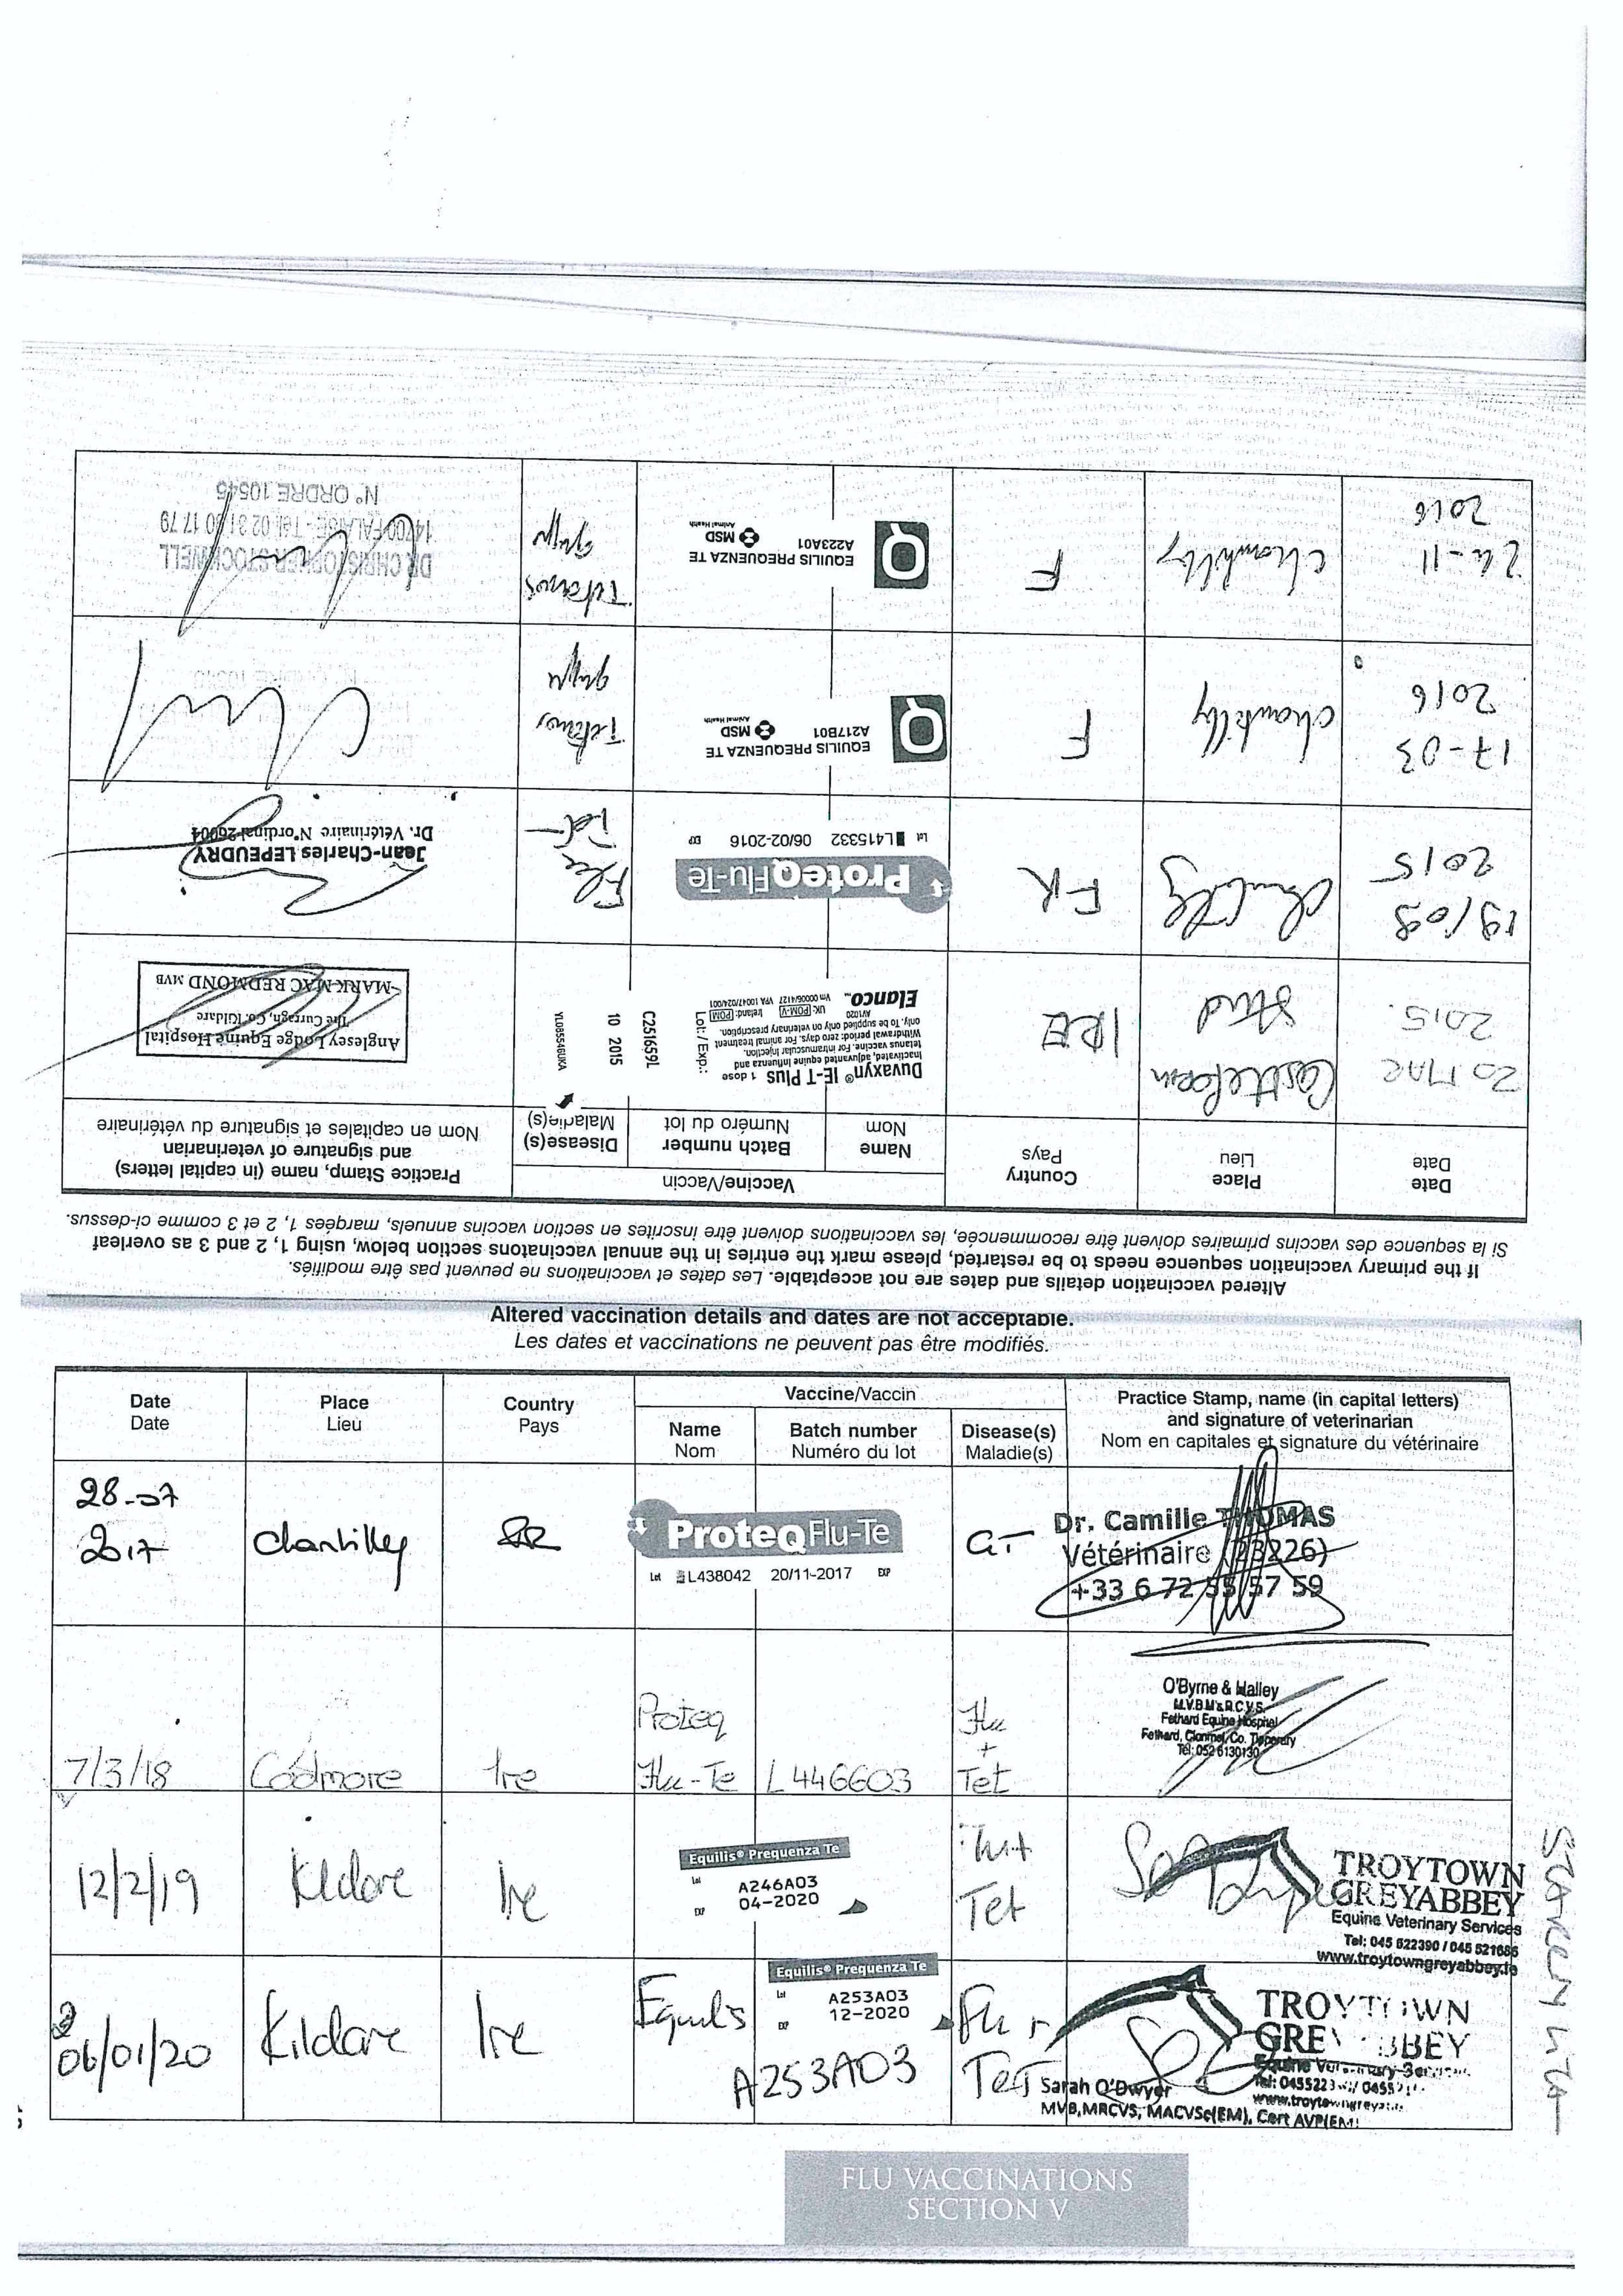 Altered vaccination details and dates are not acceptable. Les dates et vaccinations ne peuvent pas être modifiés.
If the primary vaccination sequence needs to be restarted, please mark the entries in the annual vaccinatons section below, using 1, 2 and 3 as overleaf
Si la sequence des vaccins primaires doivent être recommencée, les vaccinations doivent être inscrites en section vaccins annuels, marqées 1, 2 et 3 comme ci-dessus.
Date
Date
Place
Lieu
Country
Pays
Vaccine/Vaccin
Name
Nom
Batch number
Numéro du lot
Disease(s)
Maladie(s)
Practice Stamp, name (in capital letters)
and signature of veterinarian
Nom en capitales et signature du vétérinaire
20 MAR
2015.
Castlefarm
Stud
IRE
Duvaxyn® IE-T Plus 1 dose
Inactivated, adjuvanted equine influenza and
tetanus vaccine. For intramuscular injection.
Withdrawal period: zero days. For animal treatment
only. To be supplied only on veterinary prescription.
AV1020 UK: POM-V Ireland: POM
Elanco Vm 00006/4127 VPA 10047/024/001
Lot: / Exp.:
C251659L
10 2015
YL085546UKA
Anglesey Lodge Equine Hospital
The Curragh, Co. Kildare
MARK MAC REDMOND MVB
19/08
2015
Chantilly
FR
ProteqFlu-Te
Lot L415332 06/02-2016 EXP
Flu
Tet
Jean-Charles LEPEUDRY
Dr. Vétérinaire N°ordinal 26004
17-03
2016
Chantilly
F
EQUILIS PREQUENZA TE
A217B01 MSD
Animal Health
Tetanos
grippe
24-11
2016
Chantilly
F
EQUILIS PREQUENZA TE
A223A01 MSD
Animal Health
Tetanos
grippe
DR CHRISTOPHER STOCKWELL
14700 FALAISE - Tél. 02 31 90 17 79
N° ORDRE 10545
Altered vaccination details and dates are not acceptable.
Les dates et vaccinations ne peuvent pas être modifiés.
Date
Date
Place
Lieu
Country
Pays
Vaccine/Vaccin
Name
Nom
Batch number
Numéro du lot
Disease(s)
Maladie(s)
Practice Stamp, name (in capital letters)
and signature of veterinarian
Nom en capitales et signature du vétérinaire
28-07
2017
Chantilly
FR
ProteqFlu-Te
Lot L438042 20/11-2017 EXP
GT
Dr. Camille THOMAS
Vétérinaire (23226)
+33 6 72 55 57 59
7/3/18
Coolmore
Ire
Proteq
Flu-Te
L446603
Flu
+
Tet
O'Byrne & Halley
M.V.B M's R.C.V.S.
Fethard Equine Hospital
Fethard, Clonmel, Co. Tipperary
Tel: 052 6130130
12/2/19
Kildare
Ire
Equilis® Prequenza Te
Lot A246A03
EXP 04-2020
Tet
TROYTOWN
GREYABBEY
Equine Veterinary Services
Tel: 045 522390 / 045 521686
www.troytowngreyabbey.ie
06/01/20
Kildare
Ire
Equilis
Equilis® Prequenza Te
Lot A253A03
EXP 12-2020
A253A03
Flu +
Tet
TROYTOWN
GREYABBEY
Sarah O'Dwyer
MVB, MRCVS, MACVSc(EM), Cert AVP(EM)
FLU VACCINATIONS
SECTION V